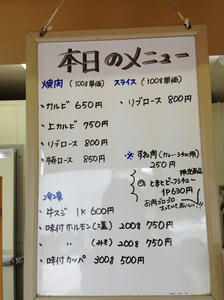 本日のメニュー
焼肉 (100g単価) スライス (100g単価)
・カルビ 650円 ・リブロース 800円
・上カルビ 750円
・リブロース 800円
・特ロース 850円
※すね肉(カレー・シチュー用)
250円
限定商品
とまとビーフシチュー
1P 630円
お肉ゴロゴロ
入っていておいしい!
・牛スジ 1K 600円
・味付ホルモン(塩) 200g 750円
・〃(みそ) 200g 750円
・味付カッパ 300g 500円